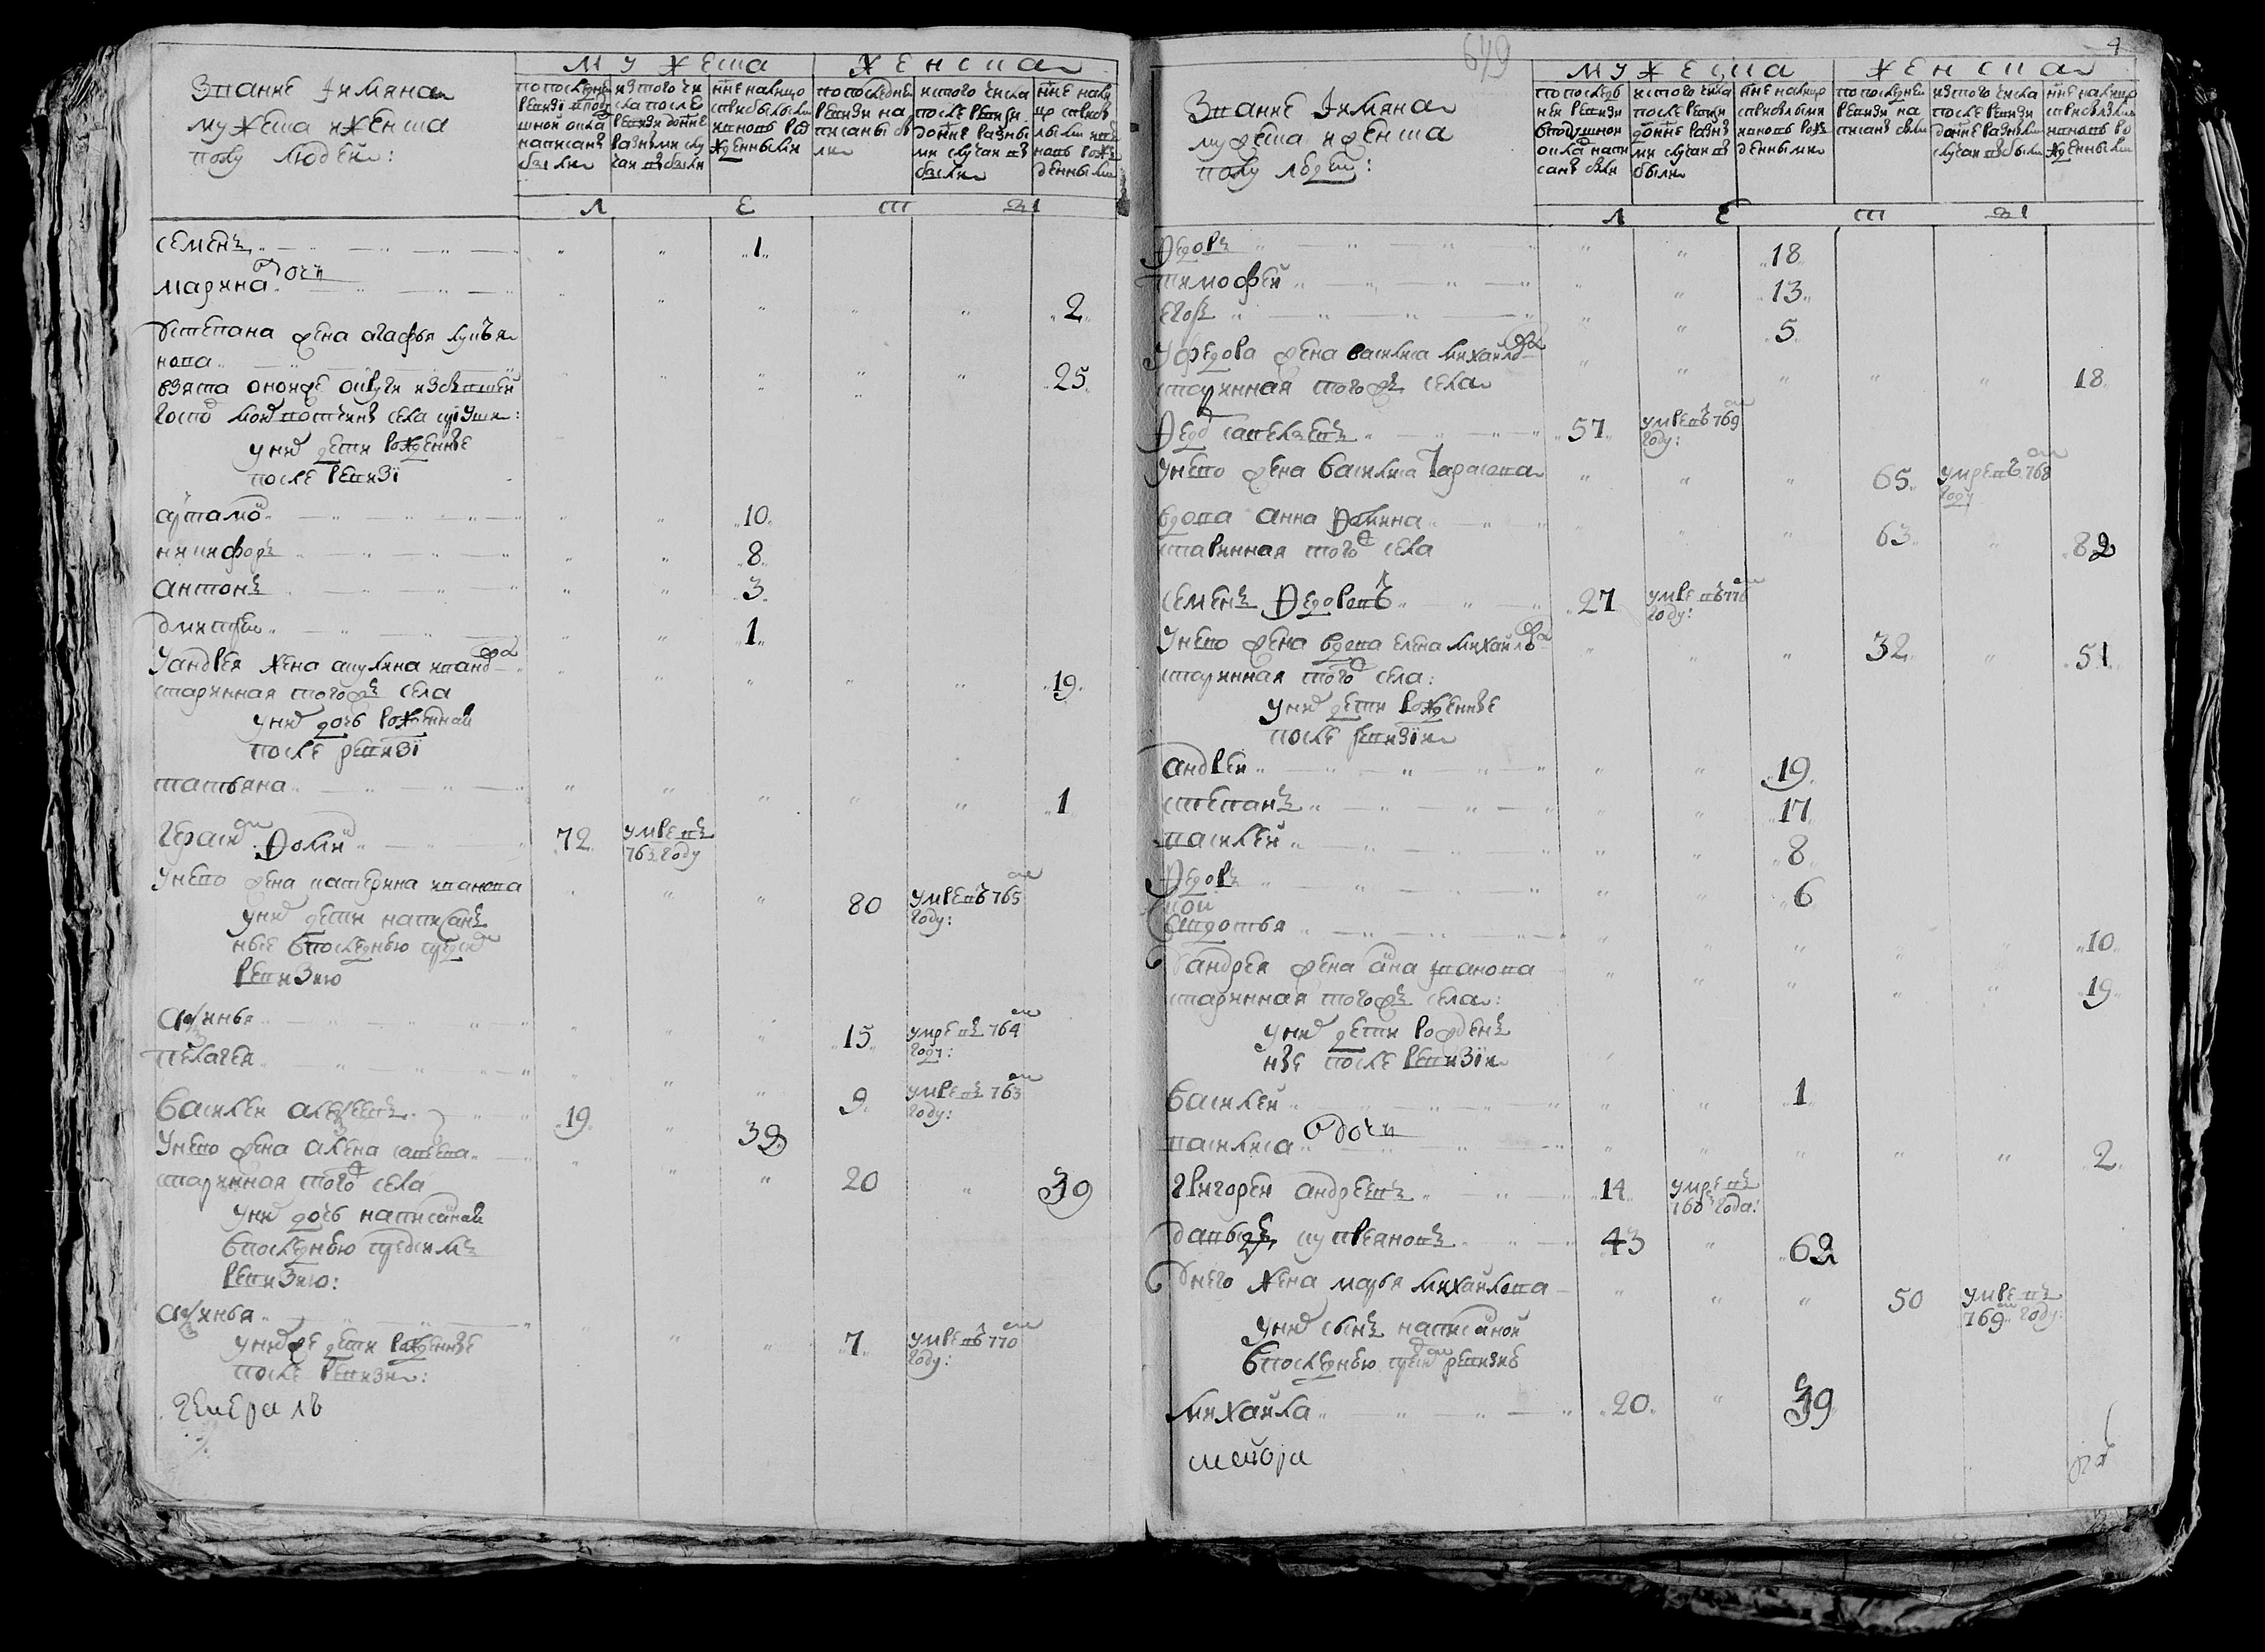 Звание Iимяна
мужеска иженска
полу людей:
мужеска
женска
попоследней ревизи вподушной оклад написанъ были
изтого числа после ревизи доныне разными случаи выбыли
ныне налицо сприбылыми ивновь рожденными
попоследней ревизи написаны были
истого числа после ревизи доныне разными случаи выбыли
ныне налицо сприбылыми ивновь рожденными
л е т ы
семенъ 1
одочи
марина 2
устепана жена агафья лукья
нова 25
взята оноиже округи
села
уних дети рожденные
после ревизi
артамо 10
никифоръ 8
антонъ 3
дмитреи 1
Уандрея жена акулина иванова 19
стариннай тогожъ села
уних дочь рожденнай
после ревизi
татьяна 1
герасим Фоми 72 умре въ
763 году
Унево жена катерина иванова 80 умре въ 765
году:
уних дети написанъ
ные впоследнью пред сим
ревизию
аксинья 15 умре въ 764
году:
пелагея 9 умре въ 763
году:
василеи алексеевъ 19 32
Унево жена алена савева 20 39
старинная того ж села
уних дочь написанай
впоследнью предсимъ
ревизию:
аксинья 7 умре въ 770
году:
унихже дети рожденные
после ревизи:
генералъ
649
4
Звание Iимяна
мужеска иженска
полу людей:
мужеска
женска
попоследней ревизи вподушной оклад написанъ были
истого числа после ревизи доныне разными случаи выбыли
ныне налицо сприбылыми ивновь рожденными
попоследней ревизи написаны были
изтого числа после ревизи доныне разными случаи выбыли
ныне налицо сприбылыми ивновь рожденными
л е т ы
Федоръ 18
тимофей 13
егоръ 5
Уфедора жена василиса михайлова
старинная тогожъ села 18
Фед савельевъ 57 умре въ 769
году:
Унево жена василиса Тарасова 65 умре въ 768
году
вдова анна Фомина 63 82
старинная того ж села
семенъ Федоровъ 27 умре въ 778
году:
Унево жена вдова елена михайлова 32 51
старинная того ж села:
уних дети рожденные
после ревизiи
андреи 19
степанъ 17
василей 8
Федоръ 6
евдотья 10
уандрея жена ана иванова
старинная тогожъ села: 19
уних дети рожденъ
ные после ревизiи
василей 1
одочи
василиса 2
григорей андреевъ 14 умре въ
768 года:
давыдъ куприяновъ 43 62
унего жена марья михайлова 50 умре въ
769 году:
уних сынъ написаной
впоследнью пред сим ревизию
михаила 20 39
маиора